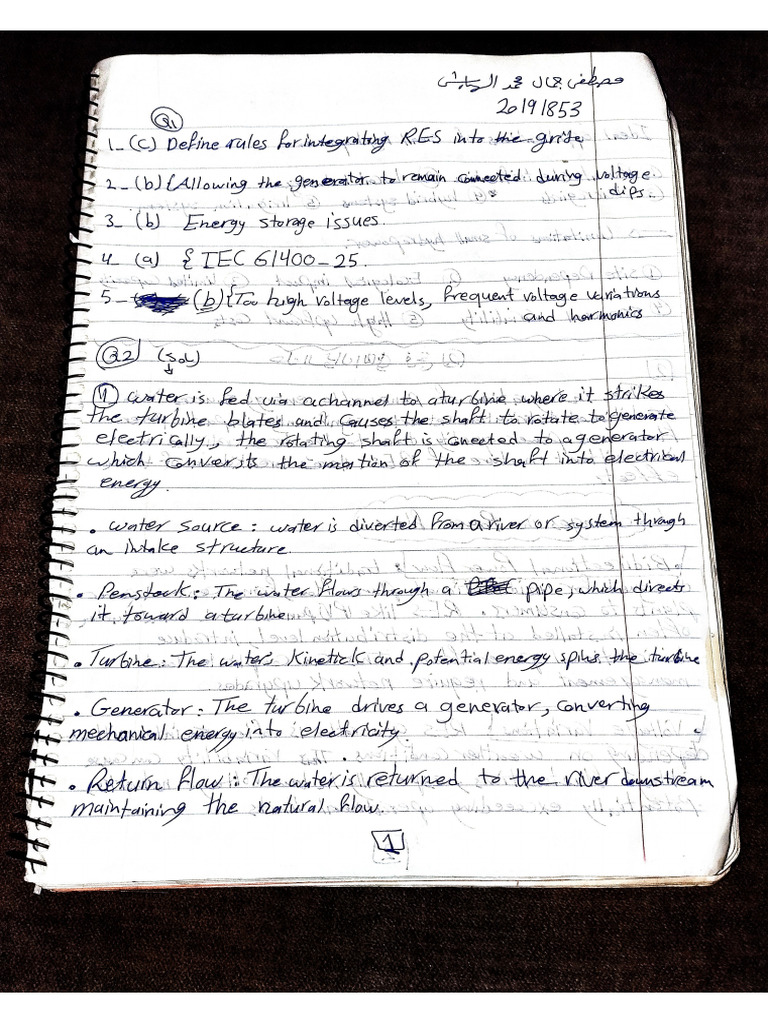 مصطفى جمال محمد
20191853
Q1
1_ (c) Define rules for integrating R.E.S into the gride
2_ (b) { Allowing the generator to remain connected during voltage
dips.
3_ (b) Energy storage issues.
4_ (a) { IEC 61400-25.
5_ (b) { Too high voltage levels, frequent voltage variations
and harmonics
Q2 (sol)
1 water is fed via a channel to a turbine where it strikes
the turbine blates and causes the shaft to rotate to generate
electrically, the rotating shaft is conected to a generator
which converts the mortion of the shaft into electrical
energy.
• water source : water is diverted from a river or system through
an intake structure.
• Penstock : The water flows through a pipe, which directs
it toward a turbine
• Turbine : The water, kinetick and potential energy spins the turbine
• Generator : The turbine drives a generator, converting
mechanical energy into electricity.
• Return flow : The water is returned to the river downstream
maintaining the natural flow.
1